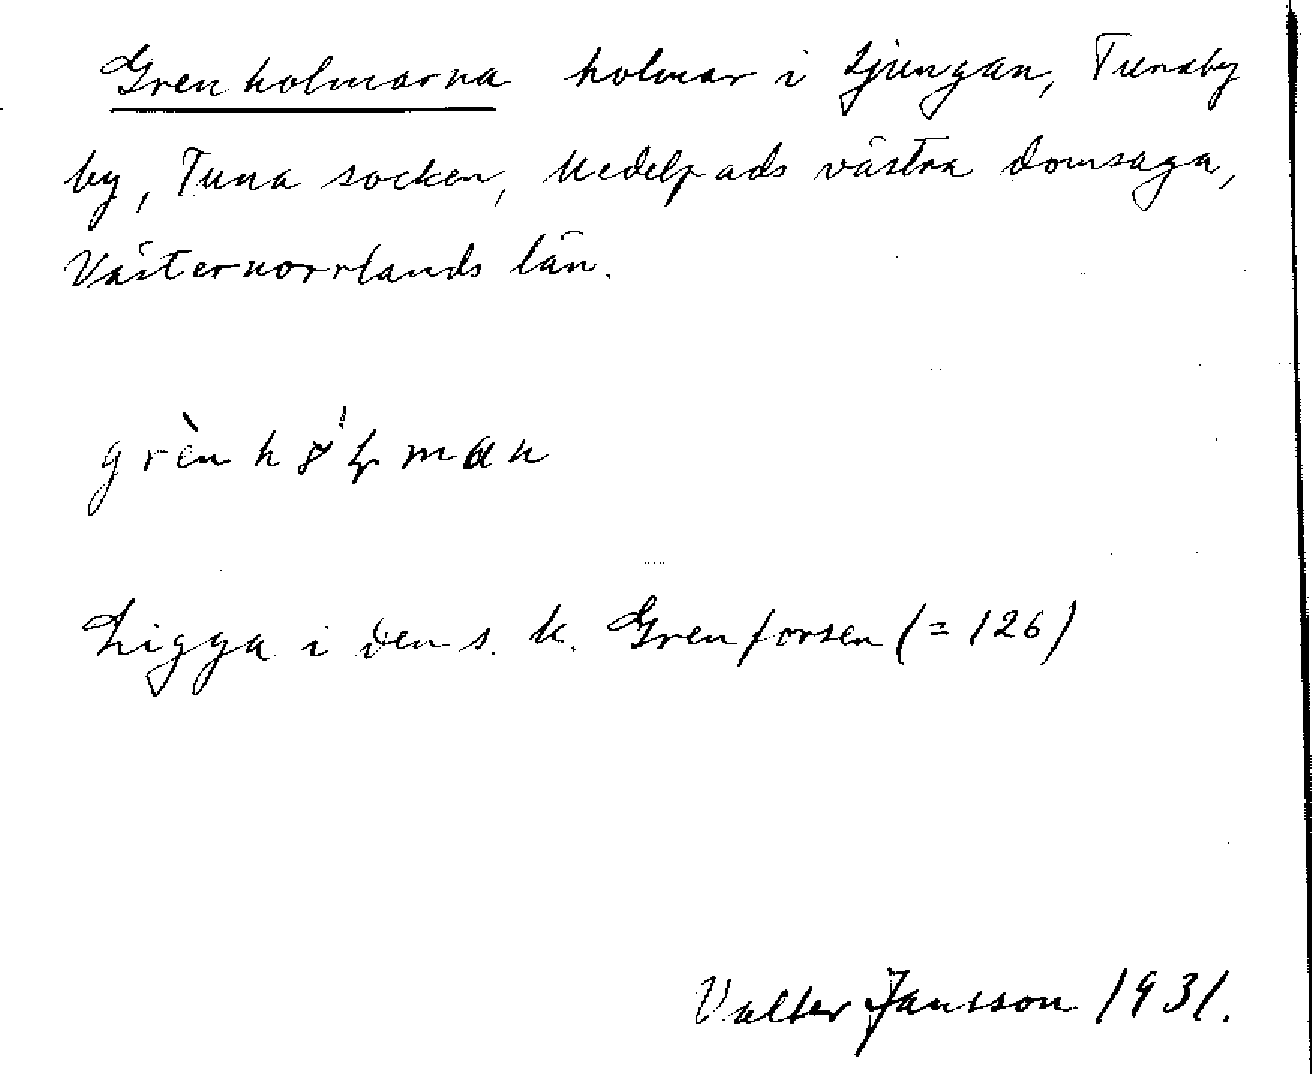 Grenholmarna holmar i Ljungan, Tunaby
by, Tuna socken, Medelpads västra domsaga,
Västernorrlands län.
Ligga i den s. k. Grenforsen (= 126)
Valter Jansson 1931.